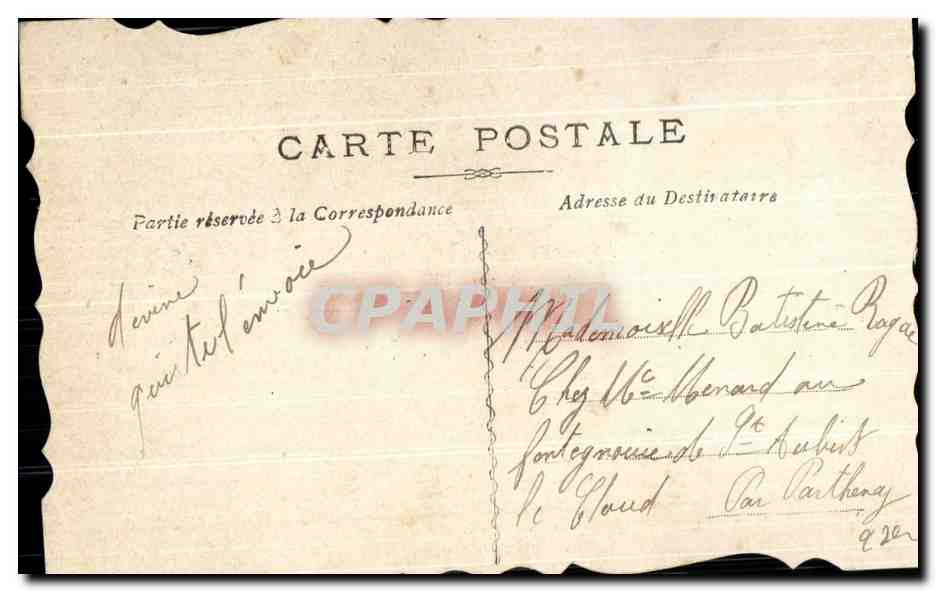 CARTE POSTALE
Partie réservée à la Correspondance
Adresse du Destinataire
deviné
qui tel envoie
CPAPHIL
Mademoiselle Batistine
Chez Mc Menard au
de St Aubin
le Cloud Par Parthenay